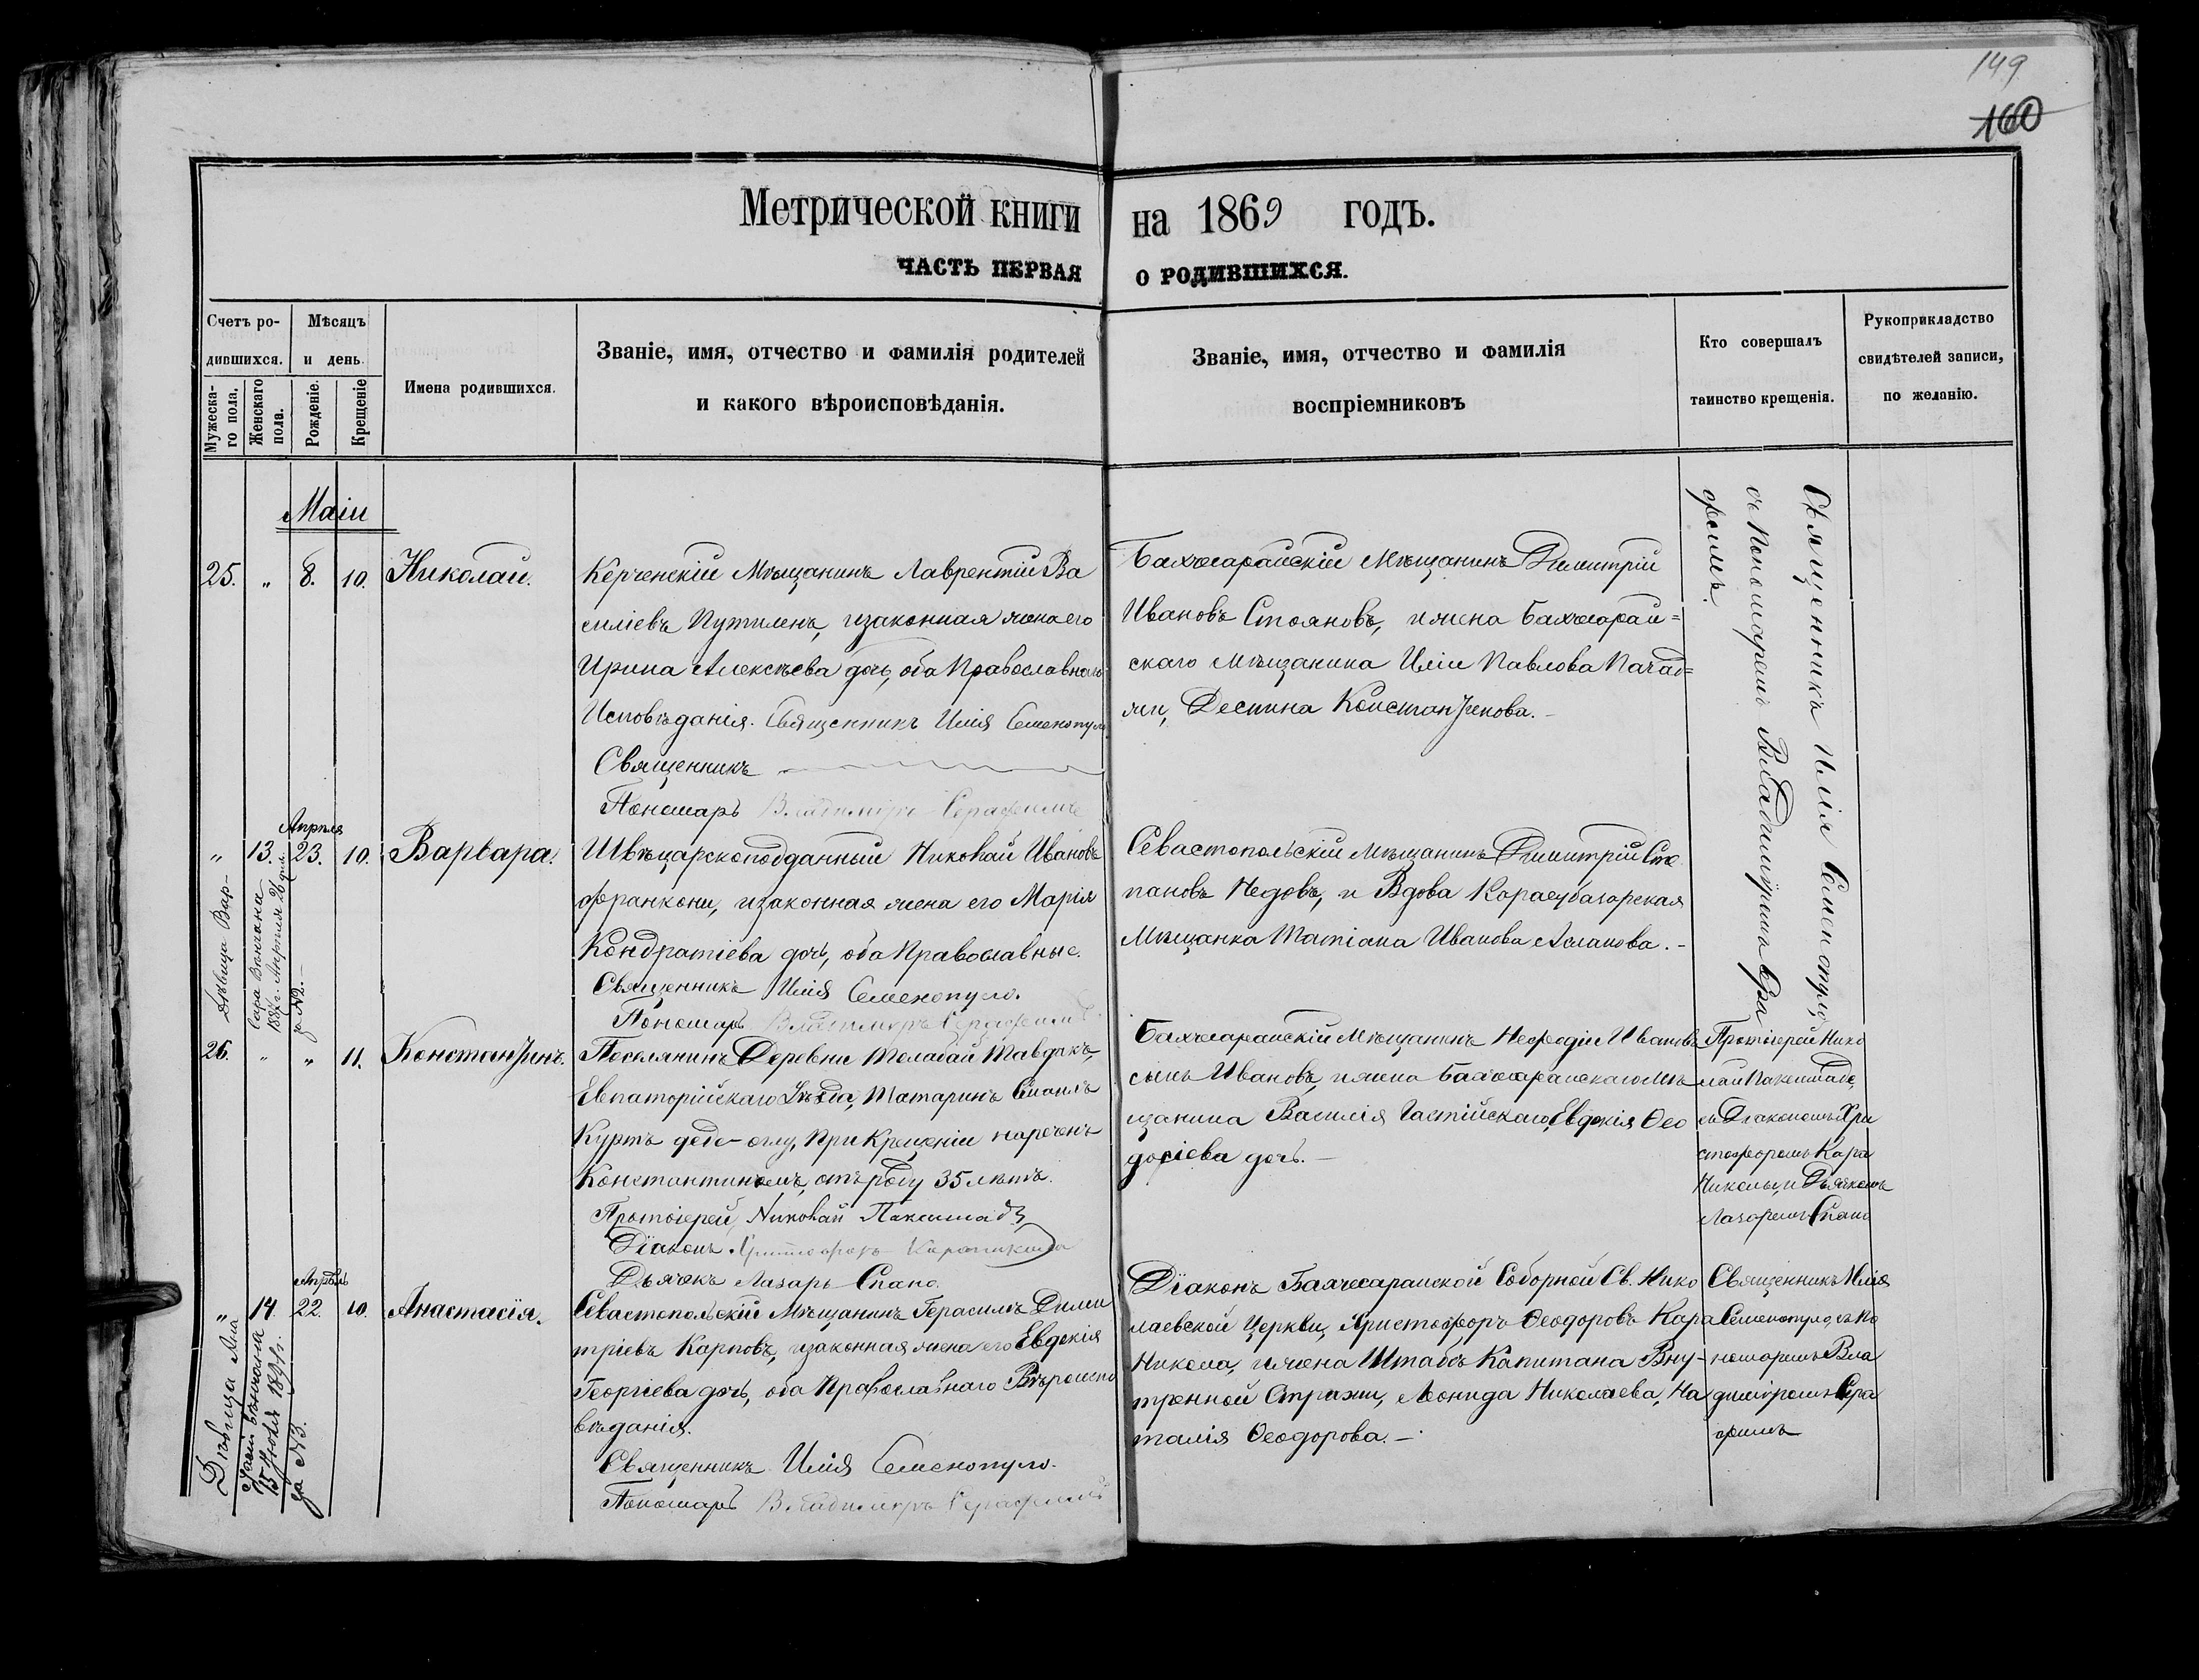 149
160
Метрической книги на 1869 годъ.
ЧАСТЬ ПЕРВАЯ О РОДИВШИХСЯ.
Счетъ ро-
дившихся.
Мѣсяцъ
и день.
Мужеска-
го пола.
Женскаго
пола.
Рожденіе.
Крещеніе
Имена родившихся.
Званіе, имя, отчество и фамилія родителей
и какого вѣроисповѣданія.
Званіе, имя, отчество и фамилія
воспріемниковъ
Кто совершалъ
таинство крещенія.
Рукоприкладство
свидѣтелей записи,
по желанію.
Маіи
25. " 8. 10. Николай.
Керченскій Мѣщанинъ Лаврентій Ва
силіевъ Путиленъ, изаконная жена его
Ирина Алексѣева дочь, оба Православнаго
Исповѣданія. Священникъ Илія Семенопуло
Священникъ
Пономарь Владимиръ Серафимъ
Бахчисарайскій Мѣщанинъ Димитрій
Ивановъ Стояновъ, ижена Бахчисарай=
скаго мѣщанина Иліи Павлова Пачад=
жи, Деспина Константинова.-
Священникъ Илія Семенопуло,
съ Пономаремъ Владимиромъ Сера
фимъ.
Апрѣля
" 13. 23. 10. Варвара.
Швѣцарскоподданный Николай Ивановъ
Франкони, изаконная жена его Марія
Кондратіева дочь, оба Православные.
Священникъ Илія Семенопуло.
Пономарь Владимиръ Серафимъ
Севастопольскій Мѣщанинъ Димитрій Сте
пановъ Недовъ, и Вдова Карасубазарская
Мѣщанка Татіана Иванова Асланова.-
Дѣвица Вар-
вара Вѣнчана
1887 г. Апрѣля 26 дня.
за №2.-
26. " " 11. Константинъ.
Поселянинъ Деревни Телабай Тавдакъ,
Евпаторійскаго Уѣзда, Татаринъ Смаилъ
Куртъ деде-оглу, При Крещеніи нареченъ
Константиномъ, отъ роду 35 лѣтъ.
Протоіерей, Николай Пакашадзе,
Діаконъ Христофоръ Караникола
Дьячекъ Лазарь Спано.
Бахчисарайскій Мѣщанинъ Мефодіи Ивановъ
сынъ Ивановъ, ижена Бахчисарайскаго Мѣ
щанина Василія Гастійскаго, Евдокія Ѳео
досіева дочь.-
Протоіерей Нико
съ Діакономъ Хри
стофоромъ Кара
Николы, и Дьячкомъ
Лазаремъ Спано
Апрѣль
" 14 22. 10. Анастасія.
Севастопольскій Мѣщанинъ Герасимъ Дими
тріевъ Карповъ, изаконная жена его Евдокія
Георгіева дочь, оба Православнаго Вѣроиспо
вѣданія.
Священникъ Илія Семенопуло.
Пономарь Владимиръ Серафимъ
Діаконъ Бахчесарайской Соборной Св. Нико
лаевской Церкви, Христофоръ Ѳеодоровъ Кара
Никола, ижена Штабсъ Капитана Вну-
тренной Стражи, Леонида Николаева, На
талія Ѳеодорова.-
Священникъ Илія
Семенопуло, съ По
номаремъ Вла
димиромъ Сера
фимъ
Дѣвица Ана
стасія вѣнчана
15 Іюля 1891 г.
за №3.